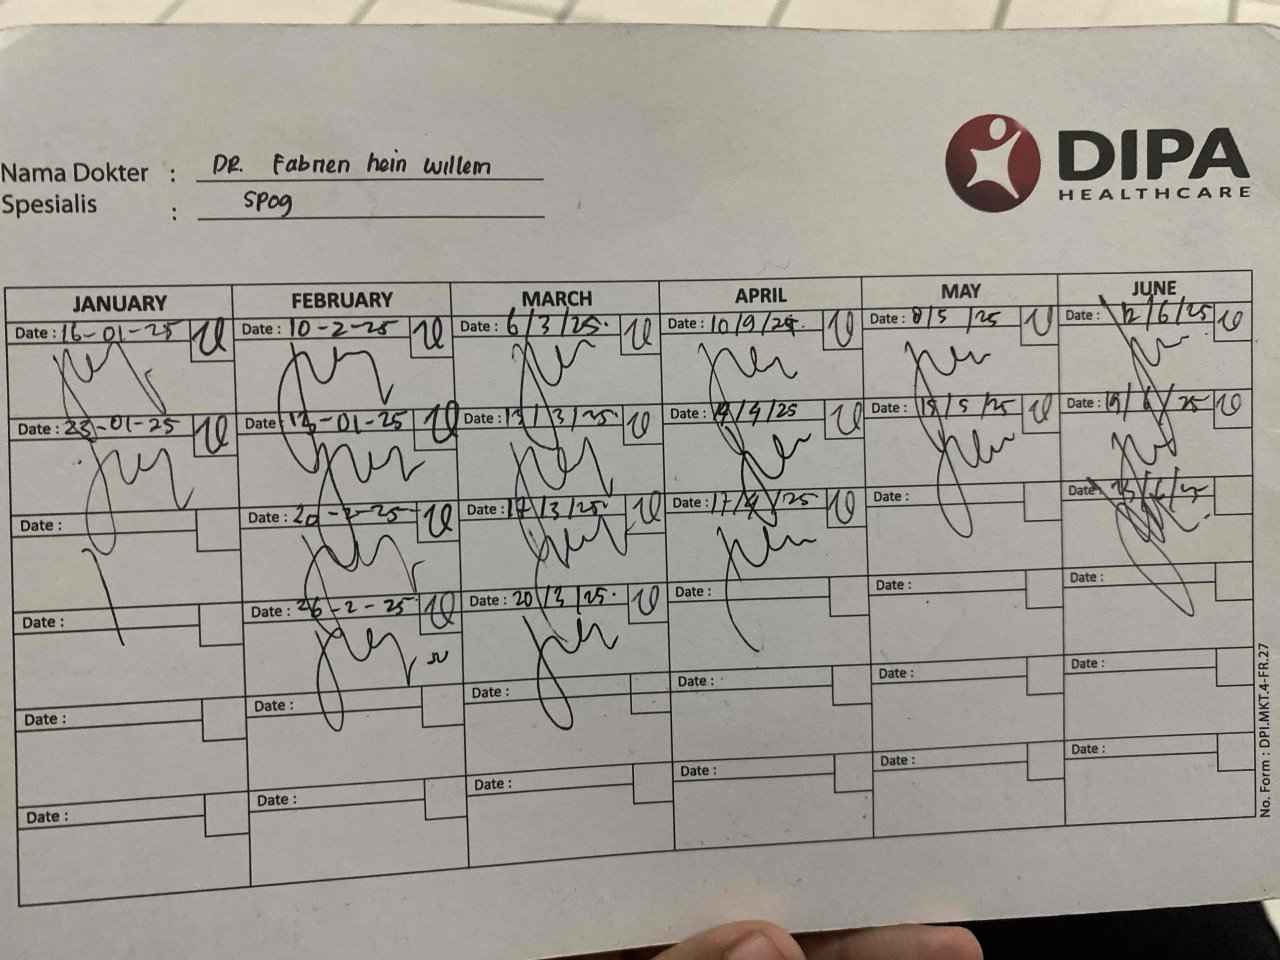 DIPA
HEALTHCARE
Nama Dokter : DR. Fabrien hein willem
Spesialis : SPOG
JANUARY FEBRUARY MARCH APRIL MAY JUNE
Date : 16-01-25 Date : 10-2-25 Date : 6/3/25. Date : 10/9/25. Date : 8/5/25 Date : 12/6/25
Date : 23-01-25 Date : 13-01-25 Date : 13/3/25. Date : 14/4/25 Date : 15/5/25 Date : 19/6/25
Date : Date : 20-2-25 Date : 17/3/25. Date : 17/4/25 Date : Date :
Date : Date : 26-2-25 Date : 20/3/25. Date : Date : Date :
Date : Date : Date : Date : Date : Date :
Date : Date : Date : Date : Date : Date :
No. Form : DPI.MKT.4-FR.27